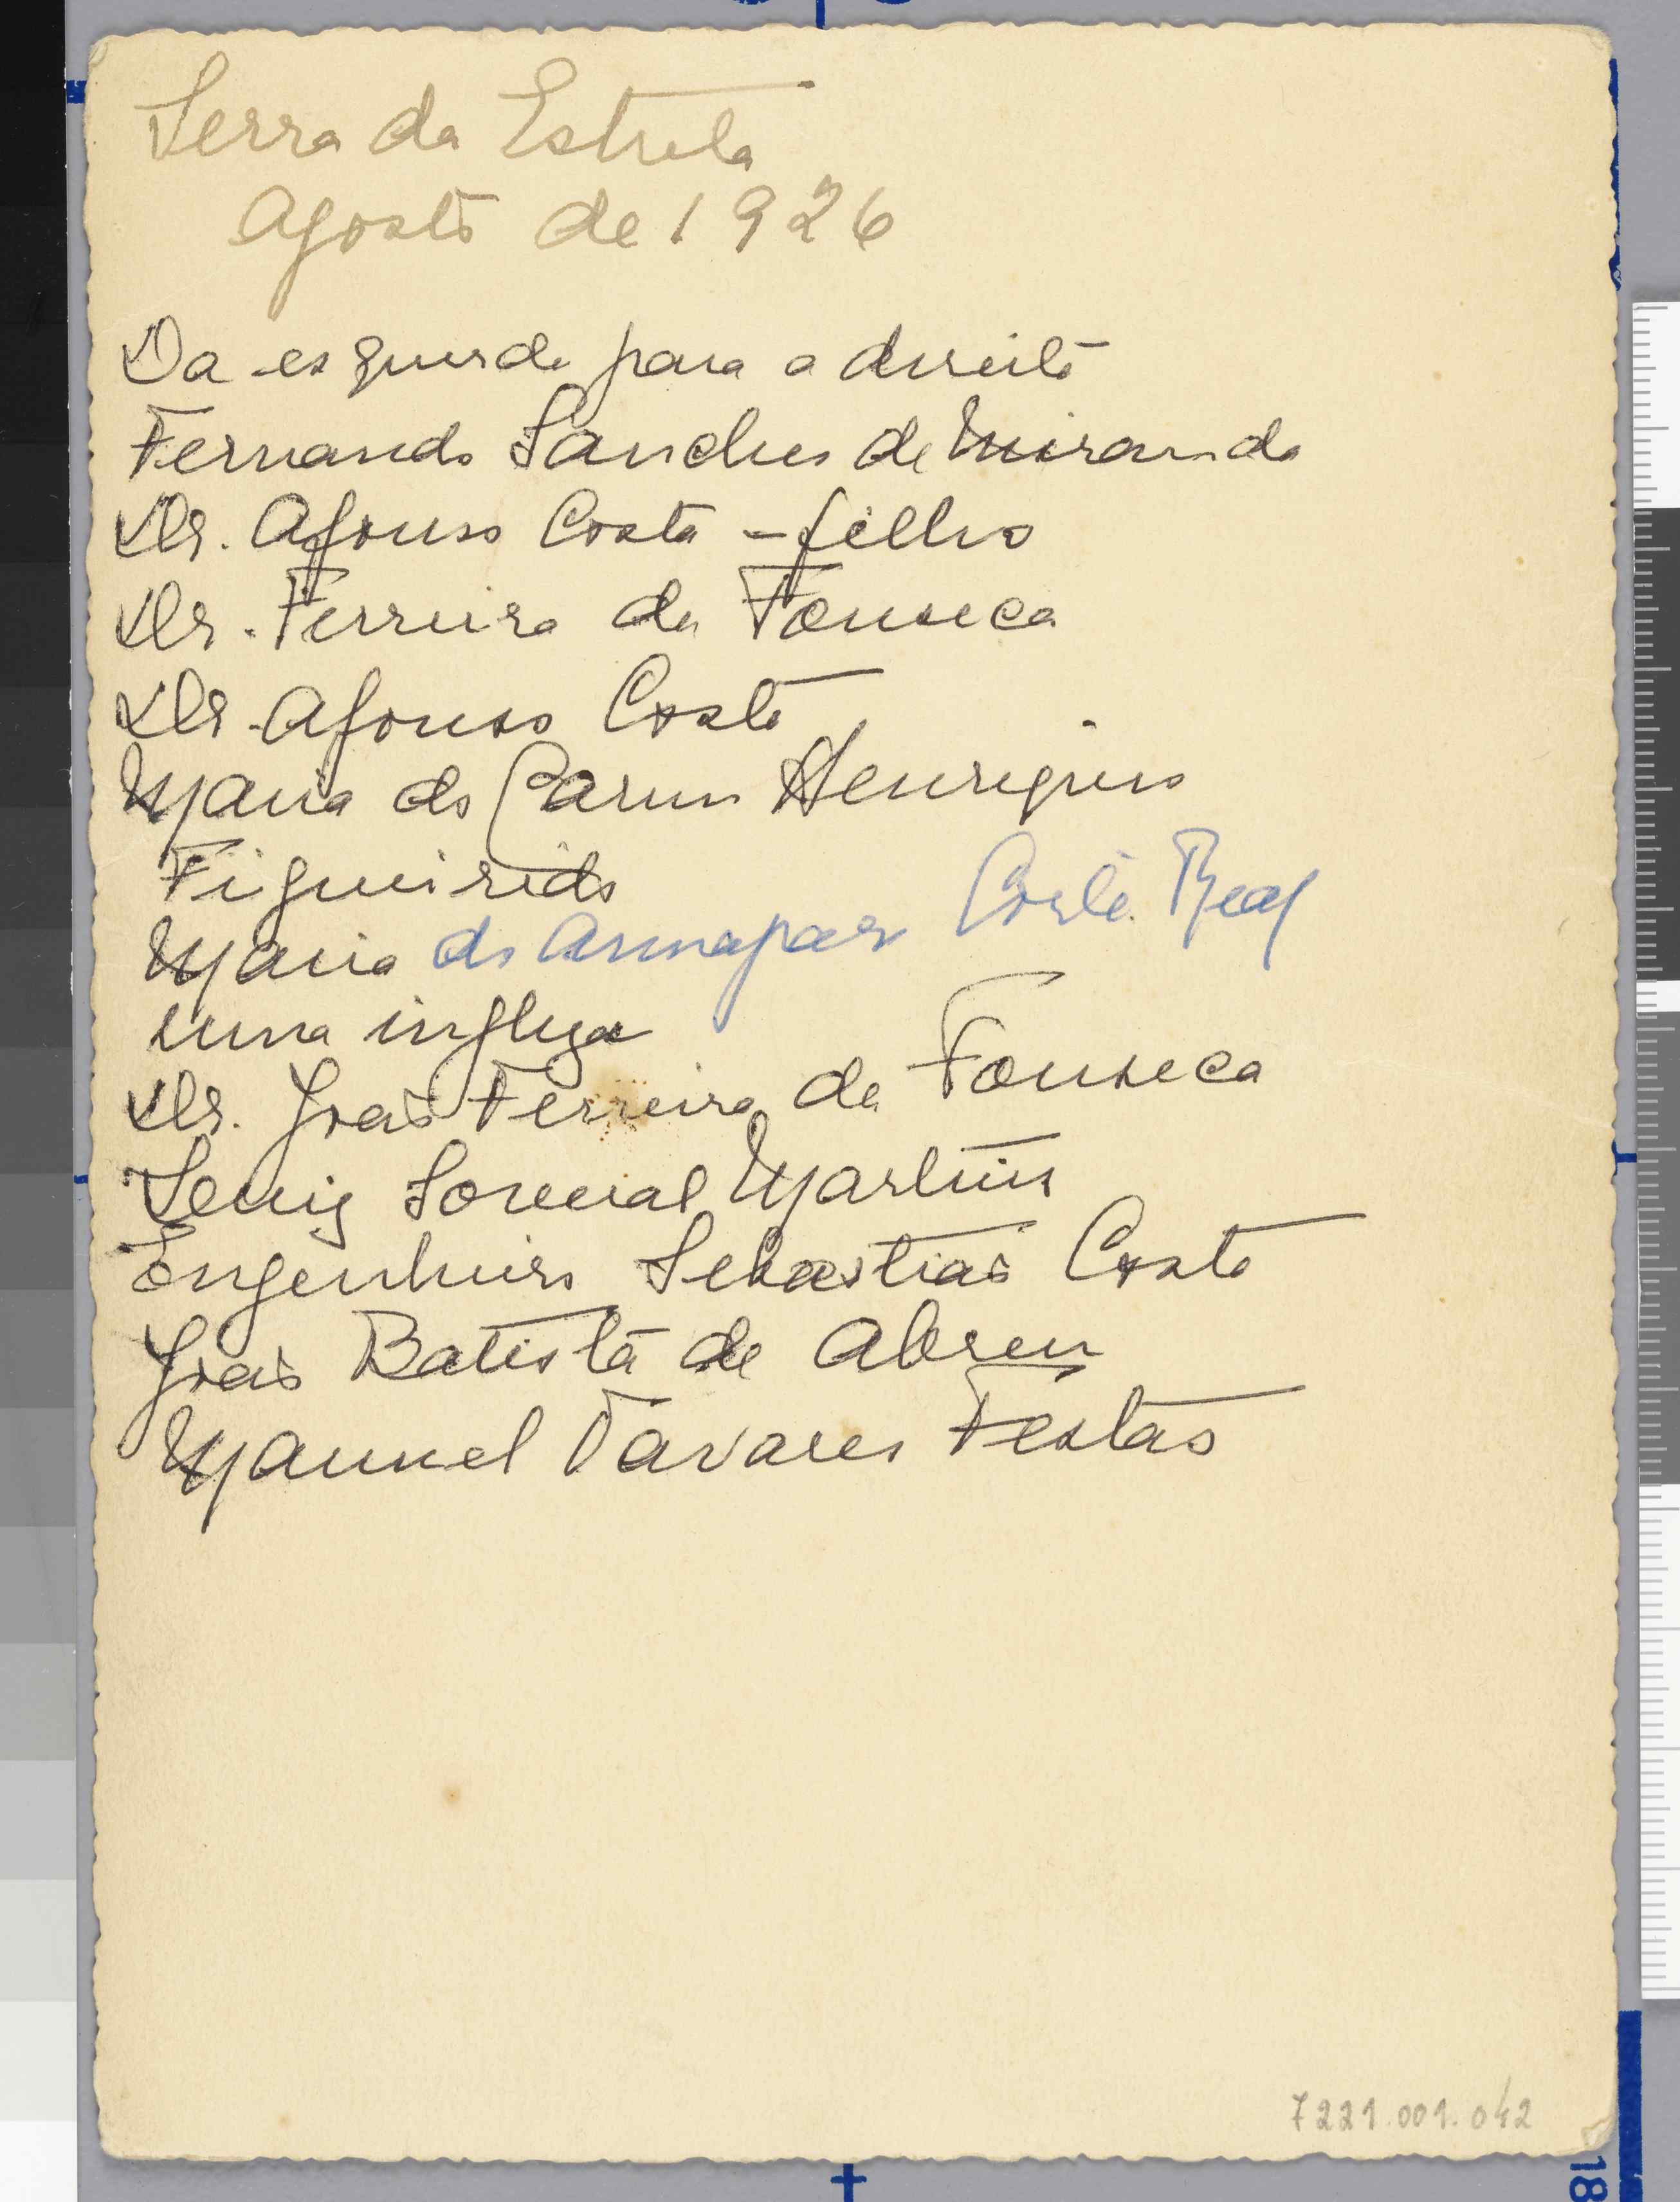 Serra da Estrela
Agosto de 1926
Da esquerda para a direita
Fernando Sanches de Miranda
Dr. Afonso Costa - filho
Dr. Ferreira da Fonseca
Dr. Afonso Costa
Maria do Carmo Henriques
Figueiredo
Maria do Amapar Corte Real
uma ingleza
Dr. João Ferreira da Fonseca
Martins
Engenheiro Sebastião Costa
João Batista de Abreu
Manuel Tavares Festas
7221.001.042
18